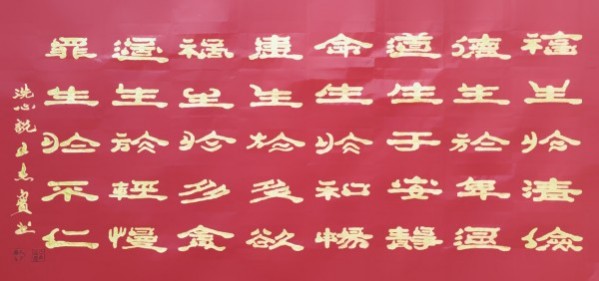 福生於清儉
德生於卑退
道生于安靜
命生於和暢
患生於多欲
禍生於多貪
過生於輕慢
罪生於不仁
洗心說